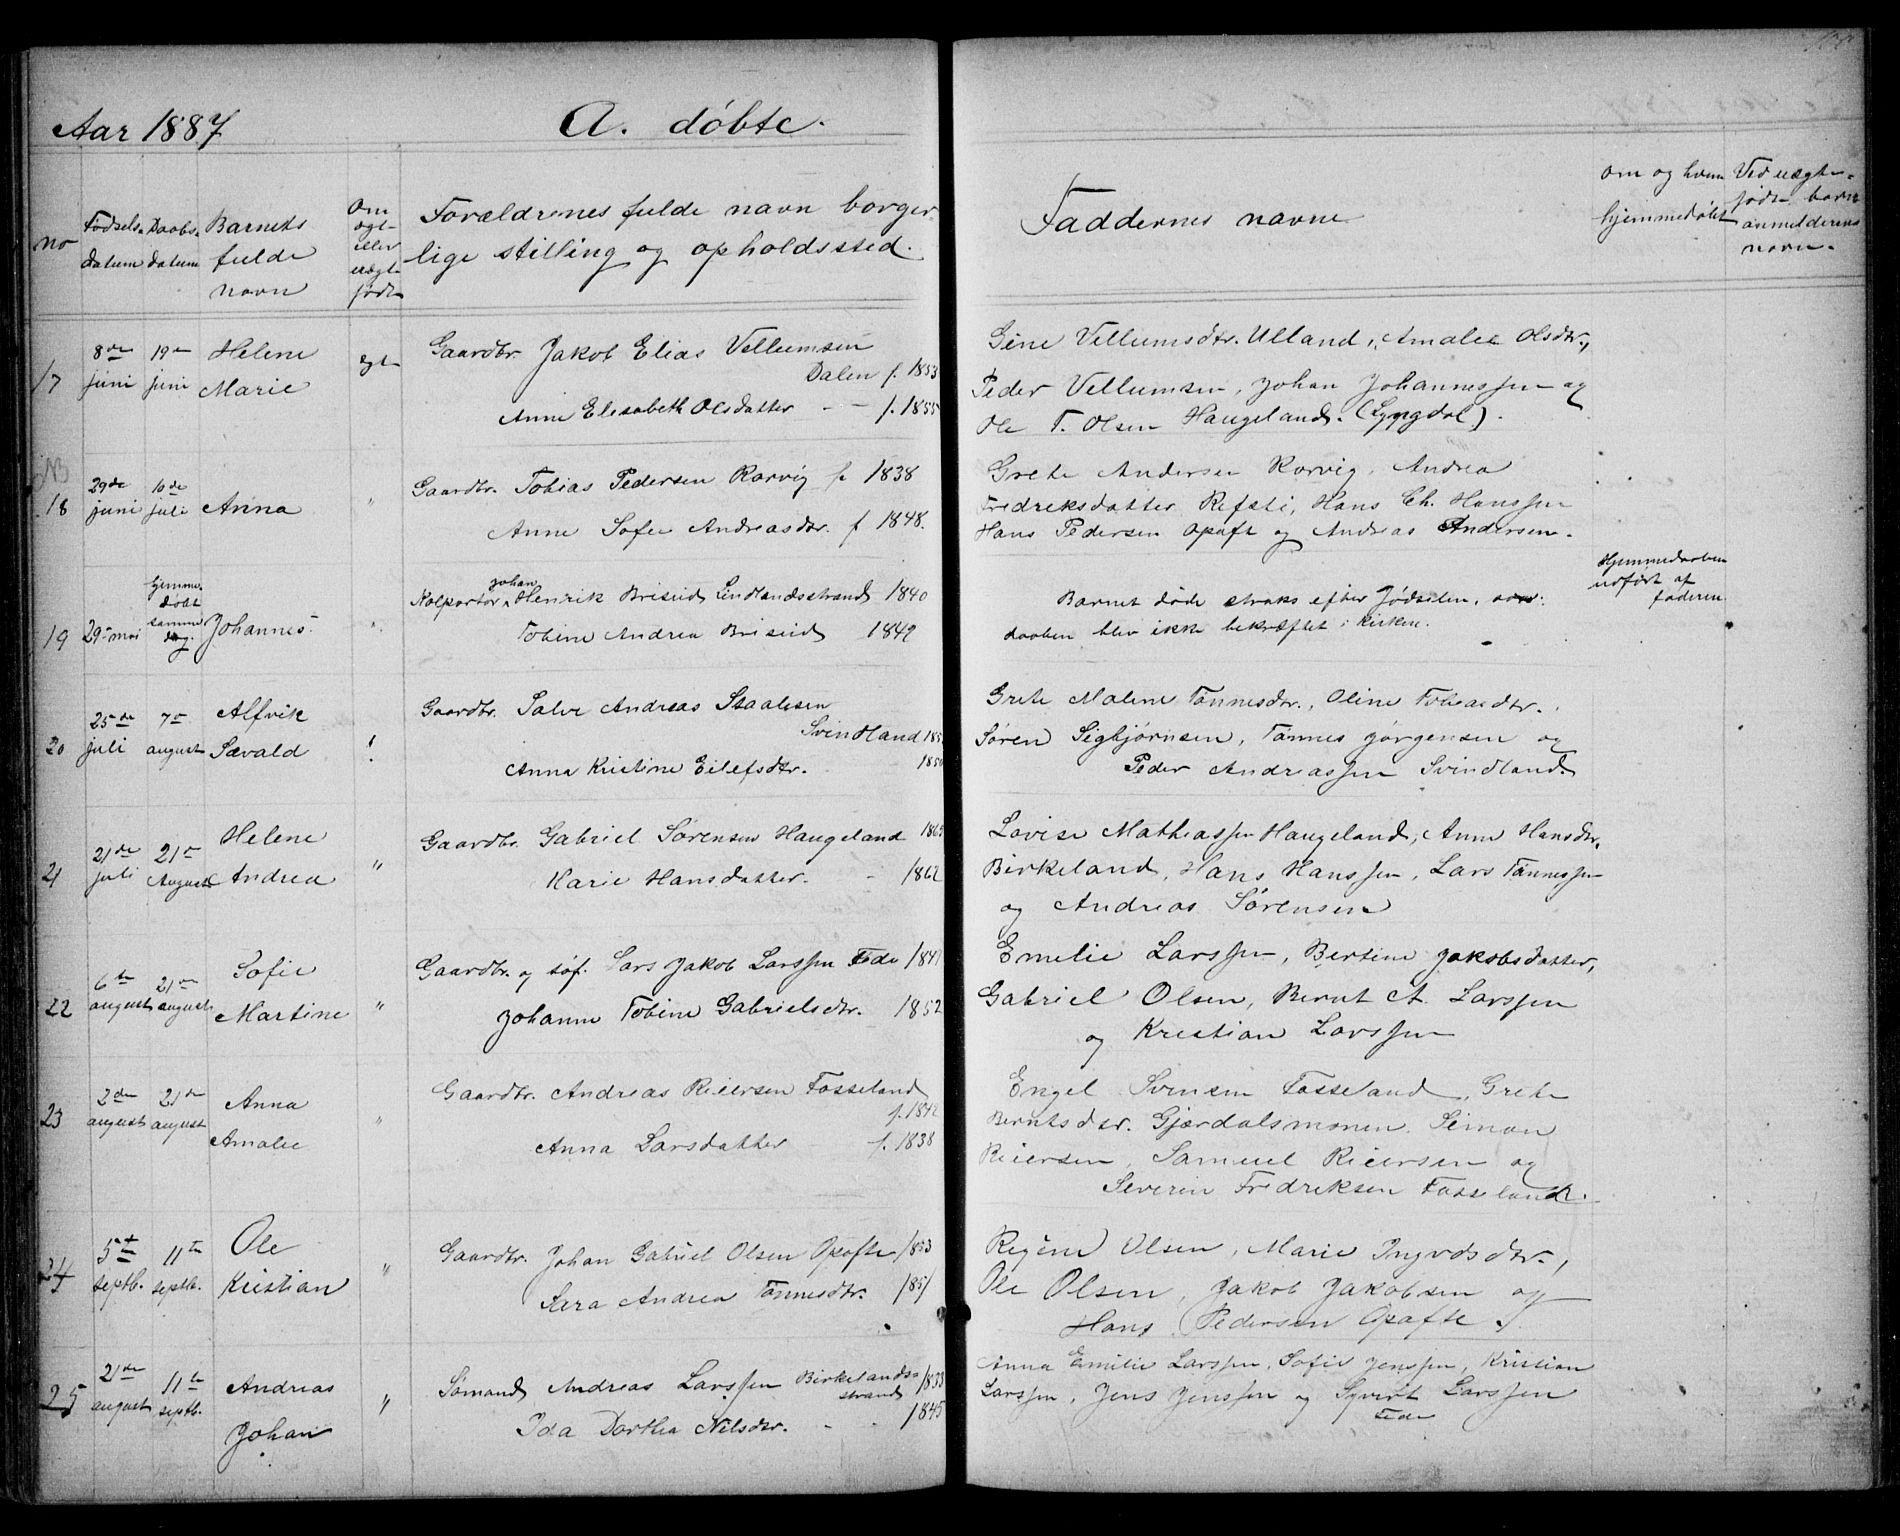 Aar 1887
A. døbte.
no
Fødsels datum
Daabs datum
Barnets fulde navn
Om ægt eller uægt født
Forældrenes fulde navn borger
lige stilling og opholdssted.
Faddernes navne
om og hvem hjemmedøbt
Ved uægte fødte børn anmelderens navn.
17
8de juni
19de juni
Helene Marie
egt
Gaardbr. Jakob Elias Vellumsen
Dalen f. 1853
Anne Elisabeth Olsdatter - - f. 1855
Gine Vellumsdtr. Ulland, Amalie Olsdtr.,
Peder Vellumsen, Johan Johannessen og
Ole T. Olsen Haugeland. (Lyngdal).
NB
18
29de juni
10de juli
Anna
"
Gaardbr. Tobias Pedersen Rorvig f. 1838
Anne Sofie Andreasdtr. f 1848.
Grete Andersen Rorvig, Andrea
Fredreksdatter Refsti, Hans Ch. Hanssen
Hans Pedersen Opofte og Andreas Andersen.
19
29 mai
hjemme døbt samme dag.
Johannes
"
Kolportør Johan Henrik Briseid Lindlandsstrand 1840
Tobine Andrea Briseid 1849
Barnet døde straks efter Fødselen,
daaben blev ikke bekræftet i kirken.
Hjemmedaaben
udført af
faderen
20
25de juli
7de august
Alfvik Sævald
Gaardbr. Salve Andreas Staalesen
Svindland
Anna Kristine Eilefsdtr.
Grete Malene Tønnesdtr., Oline Tobiasdtr.
Søren Sigbjørnsen, Tønnes Jørgensen og
Peder Andreassen Svindland.
21
21de juli
21de August
Helene Andrea
"
Gaardbr. Gabriel Sørensen Haugeland 1865
Karie Hansdatter. - 1862
Lovise Mathiassen Haugeland, Anne Hansdtr.
Birkeland, Hans Hanssen, Lars Tønnessen
og Andreas Sørensen
22
6te august
21de august
Sofie Martine
"
Gaardbr. og søf. Lars Jakob Larssen Fede
Johanne Tobine Gabrielsdtr. 1852
Emelie Larssen, Bertine Jakobsdatter,
Gabriel Olsen, Bernt A. Larssen
og Kristian Larssen
23
2den august
21de august
Anna Amalie
"
Gaardbr. Andreas Reiersen Fosseland
f. 1842
Anna Larsdatter f. 1838
Engel Svensen Fosseland, Grete
Berntsdtr. Gjærdalsmonen, Seimon
Reiersen, Samuel Reiersen og
Severin Fredriksen Fosseland.
24
5te septb.
11te septb.
Ole Kristian
"
Gaardbr. Johan Gabriel Olsen Opofte 1853
Sara Andrea Tønnesdtr. 1851
Regine Olsen, Marie Ingvdsdtr.,
Ole Olsen, Jakob Jakobsen og
Hans Pedersen Opofte.
25
21de august
11te septb.
Andreas Johan
"
Sømand Andreas Larssen Birkelands-strand 1833
Ida Dorthea Nilsdtr. - - 1845
Anna Emilie Larssen, Sofie Jenssen, Kristian
Larssen, Jens Jenssen og Syvert Larssen
Fede